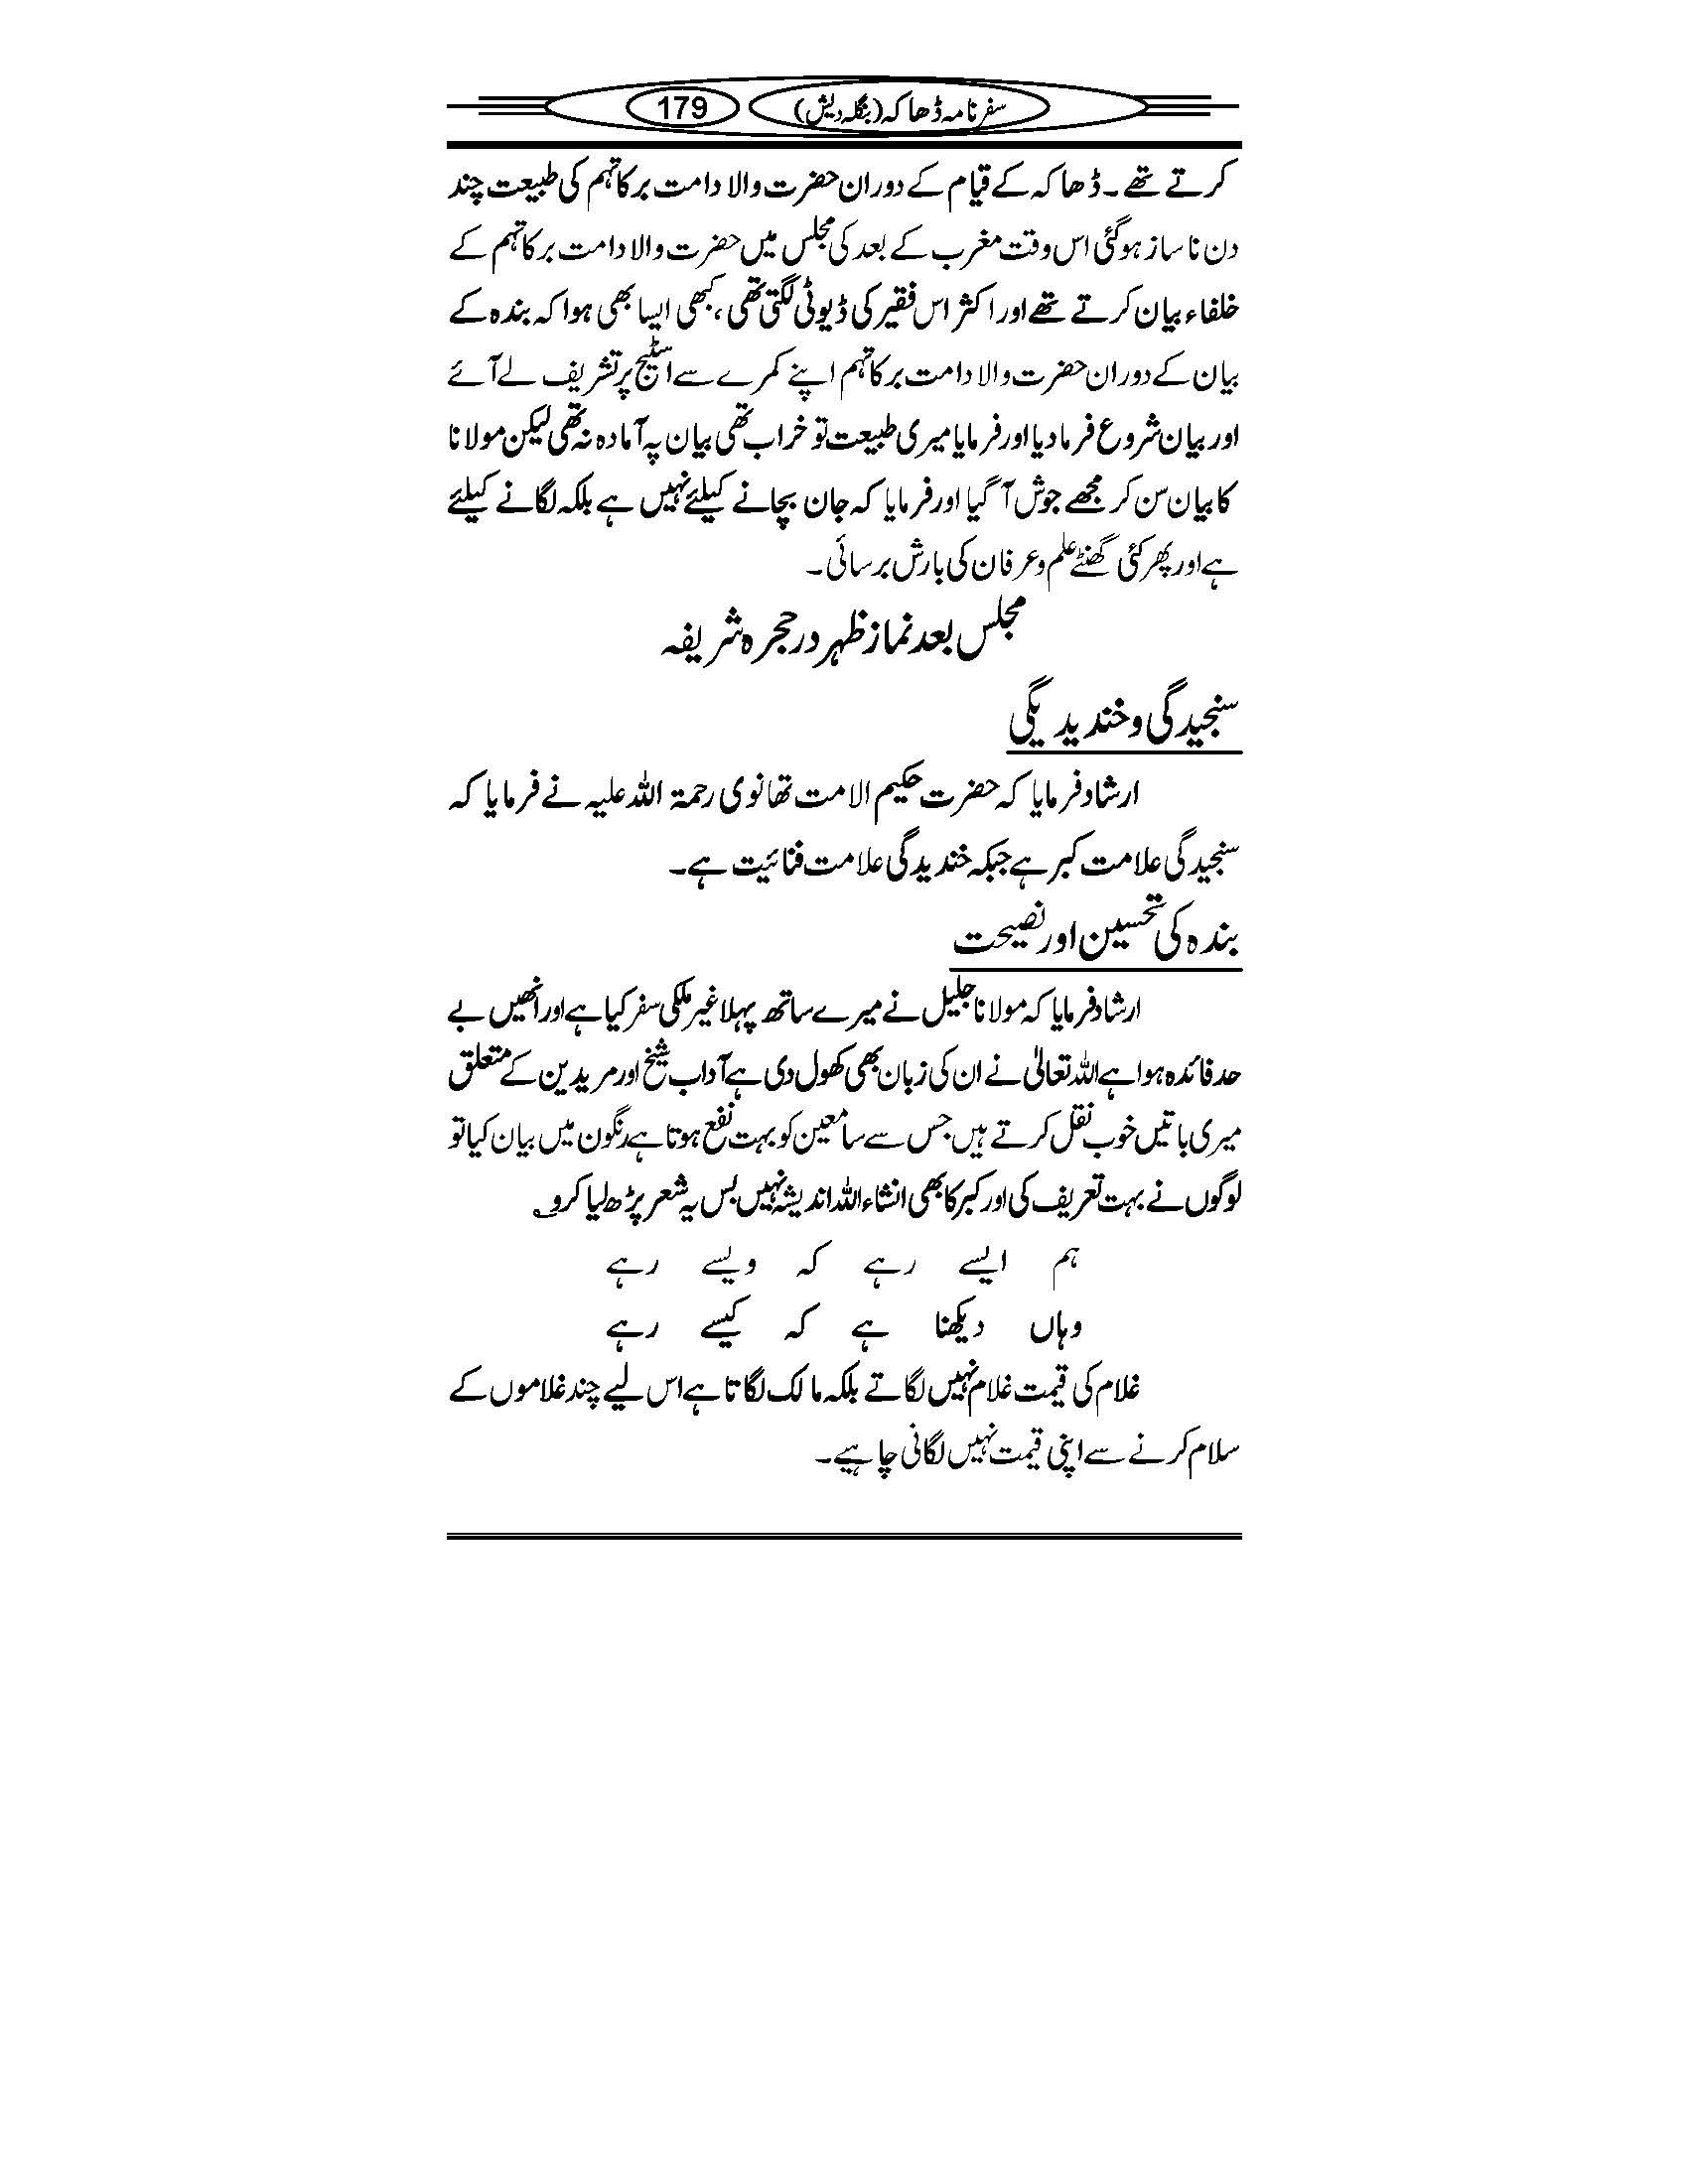 سفر نامہ ڈھاکہ (بنگلہ دیش) 179
کرتے تھے۔ ڈھاکہ کے قیام کے دوران حضرت والا دامت برکاتہم کی طبیعت چند
دن ناساز ہوگئی اس وقت مغرب کے بعد کی مجلس میں حضرت والا دامت برکاتہم کے
خلفاء بیان کرتے تھے اور اکثر اس فقیر کی ڈیوٹی لگتی تھی، کبھی ایسا بھی ہوا کہ بندہ کے
بیان کے دوران حضرت والا دامت برکاتہم اپنے کمرے سے اسٹیج پر تشریف لے آئے
اور بیان شروع فرمادیا اور فرمایا میری طبیعت تو خراب تھی بیان پہ آمادہ نہ تھی لیکن مولانا
کا بیان سن کر مجھے جوش آگیا اور فرمایا کہ جان بچانے کیلئے نہیں ہے بلکہ لگانے کیلئے
ہے اور پھر کئی گھنٹے علم و عرفان کی بارش برسائی۔
مجلس بعد نماز ظہر در حجرہ شریفہ
سنجیدگی و خندیدیگی
ارشاد فرمایا کہ حضرت حکیم الامت تھانوی رحمۃ اللہ علیہ نے فرمایا کہ
سنجیدگی علامت کبر ہے جبکہ خندیدگی علامت فنائیت ہے۔
بندہ کی تحسین اور نصیحت
ارشاد فرمایا کہ مولانا جلیل نے میرے ساتھ پہلا غیر ملکی سفر کیا ہے اور انھیں بے
حد فائدہ ہوا ہے اللہ تعالیٰ نے ان کی زبان بھی کھول دی ہے آداب شیخ اور مریدین کے متعلق
میری باتیں خوب نقل کرتے ہیں جس سے سامعین کو بہت نفع ہوتا ہے رنگون میں بیان کیا تو
لوگوں نے بہت تعریف کی اور کبر کا بھی انشاء اللہ اندیشہ نہیں بس یہ شعر پڑھ لیا کرو؎
ہم ایسے رہے کہ ویسے رہے
وہاں دیکھنا ہے کہ کیسے رہے
غلام کی قیمت غلام نہیں لگاتے بلکہ مالک لگاتا ہے اس لیے چند غلاموں کے
سلام کرنے سے اپنی قیمت نہیں لگانی چاہیے۔